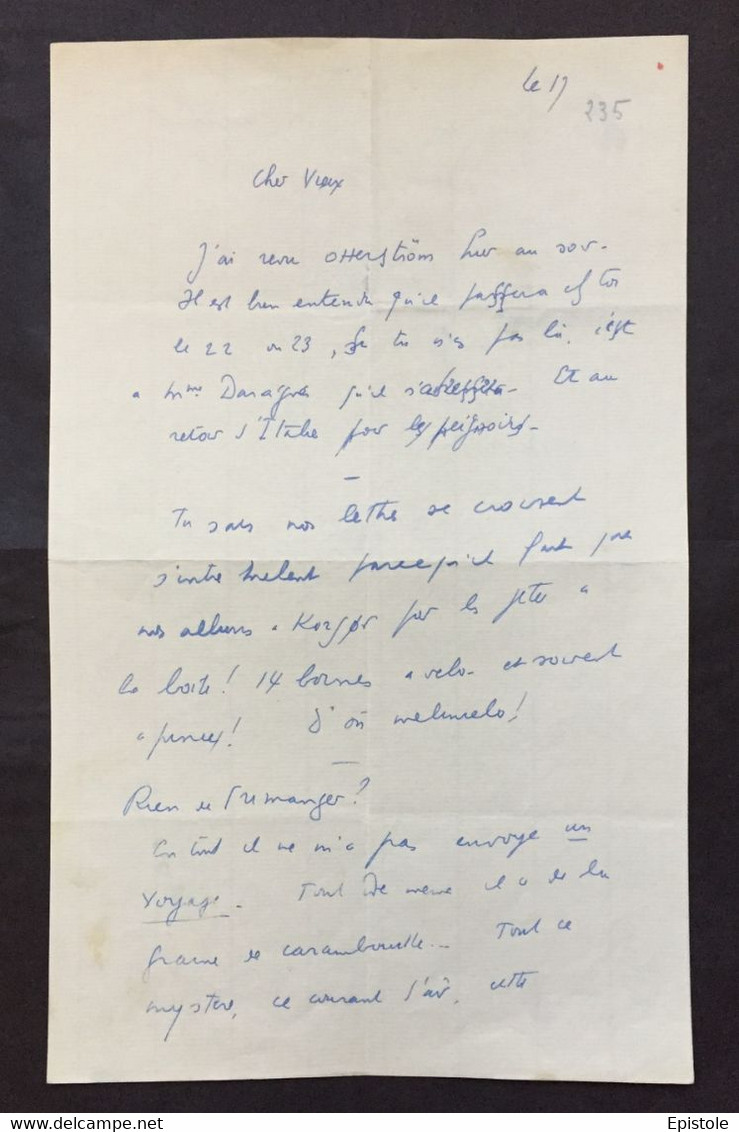 le 17
235
Cher Vieux
J'ai revu Otterström hier au soir.
Il est bien entendu qu'il passera chez toi
le 22 ou 23, Si tu n'es pas là, c'est
à Mme Daragnès qu'il s'adressera. Et au
retour d'Italie pour les peignoirs.
Tu sais nos lettres se croisent
s'entremelent parce qu'il faut que
nous allions à Korsør pour les jeter à
la boite! 14 bornes à velo et souvent
à pinces! D'où melimelo!
Rien de Tremanger?
En tout il ne m'a pas envoyé un
Voyage. Tout de meme il a de la
graine de carambouille... Tout ce
mystere, ce courant d'air, cette
Epistole